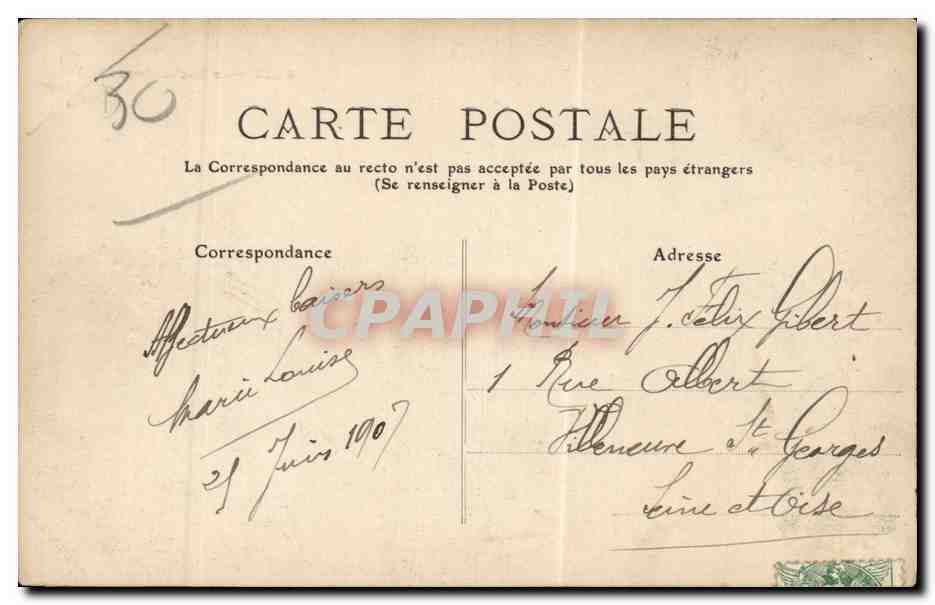 30
CARTE POSTALE
La Correspondance au recto n'est pas acceptée par tous les pays étrangers
(Se renseigner à la Poste)
Correspondance
Adresse
CPAPHIL
Affectueux baisers
Marie Louise
25 Juin 1907
Monsieur J. Félix Gibert
1 Rue Albert
Villeneuve St. Georges
Seine et Oise